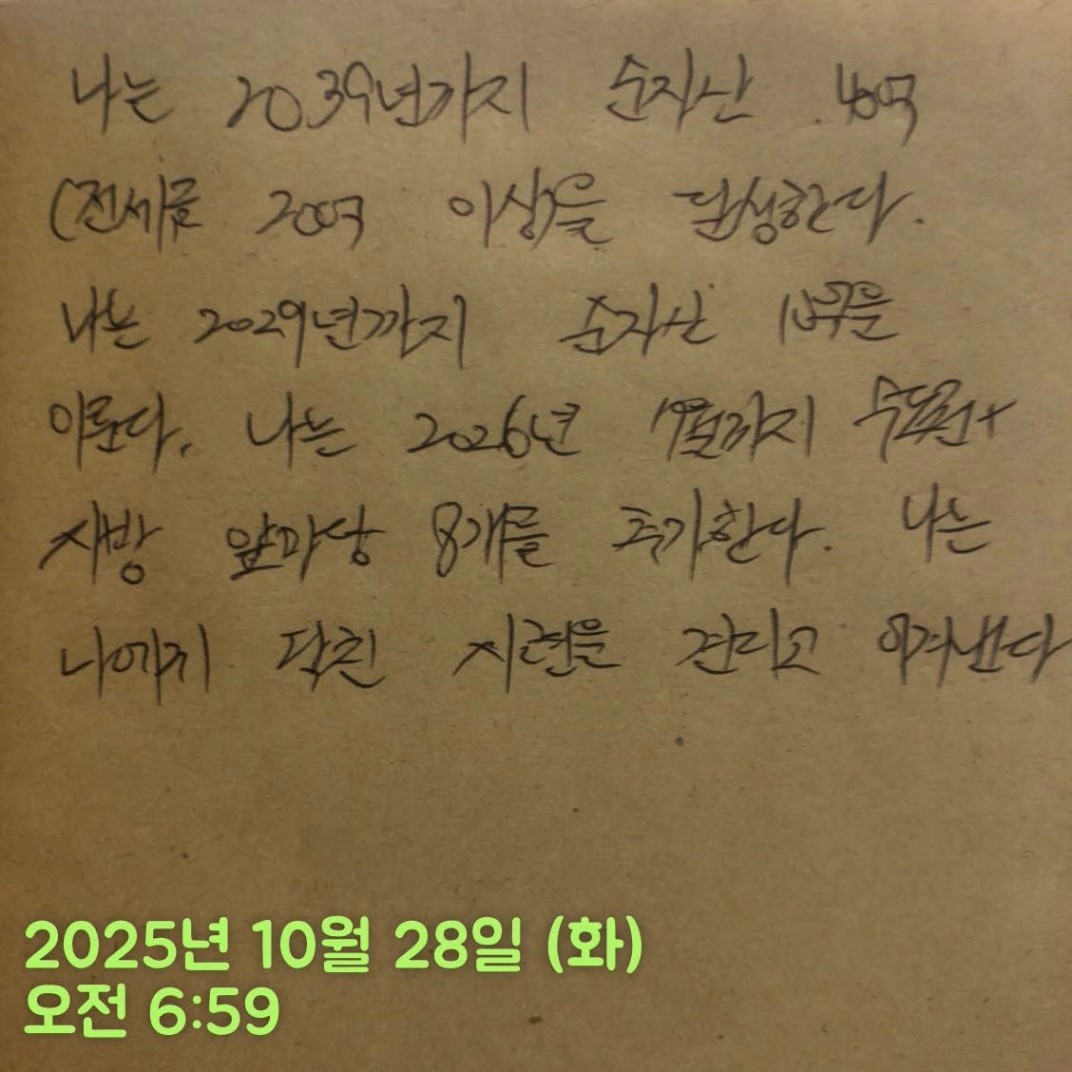 나는 2039년까지 순자산 40억
(전세금 20억 이상)을 달성한다.
나는 2029년까지 순자산 10억을
이룬다. 나는 2026년 까지 수도권+
지방 앞마당 8개를 추가한다. 나는
나에게 닥친 시련을 견디고 이겨낸다
2025년 10월 28일 (화)
오전 6:59